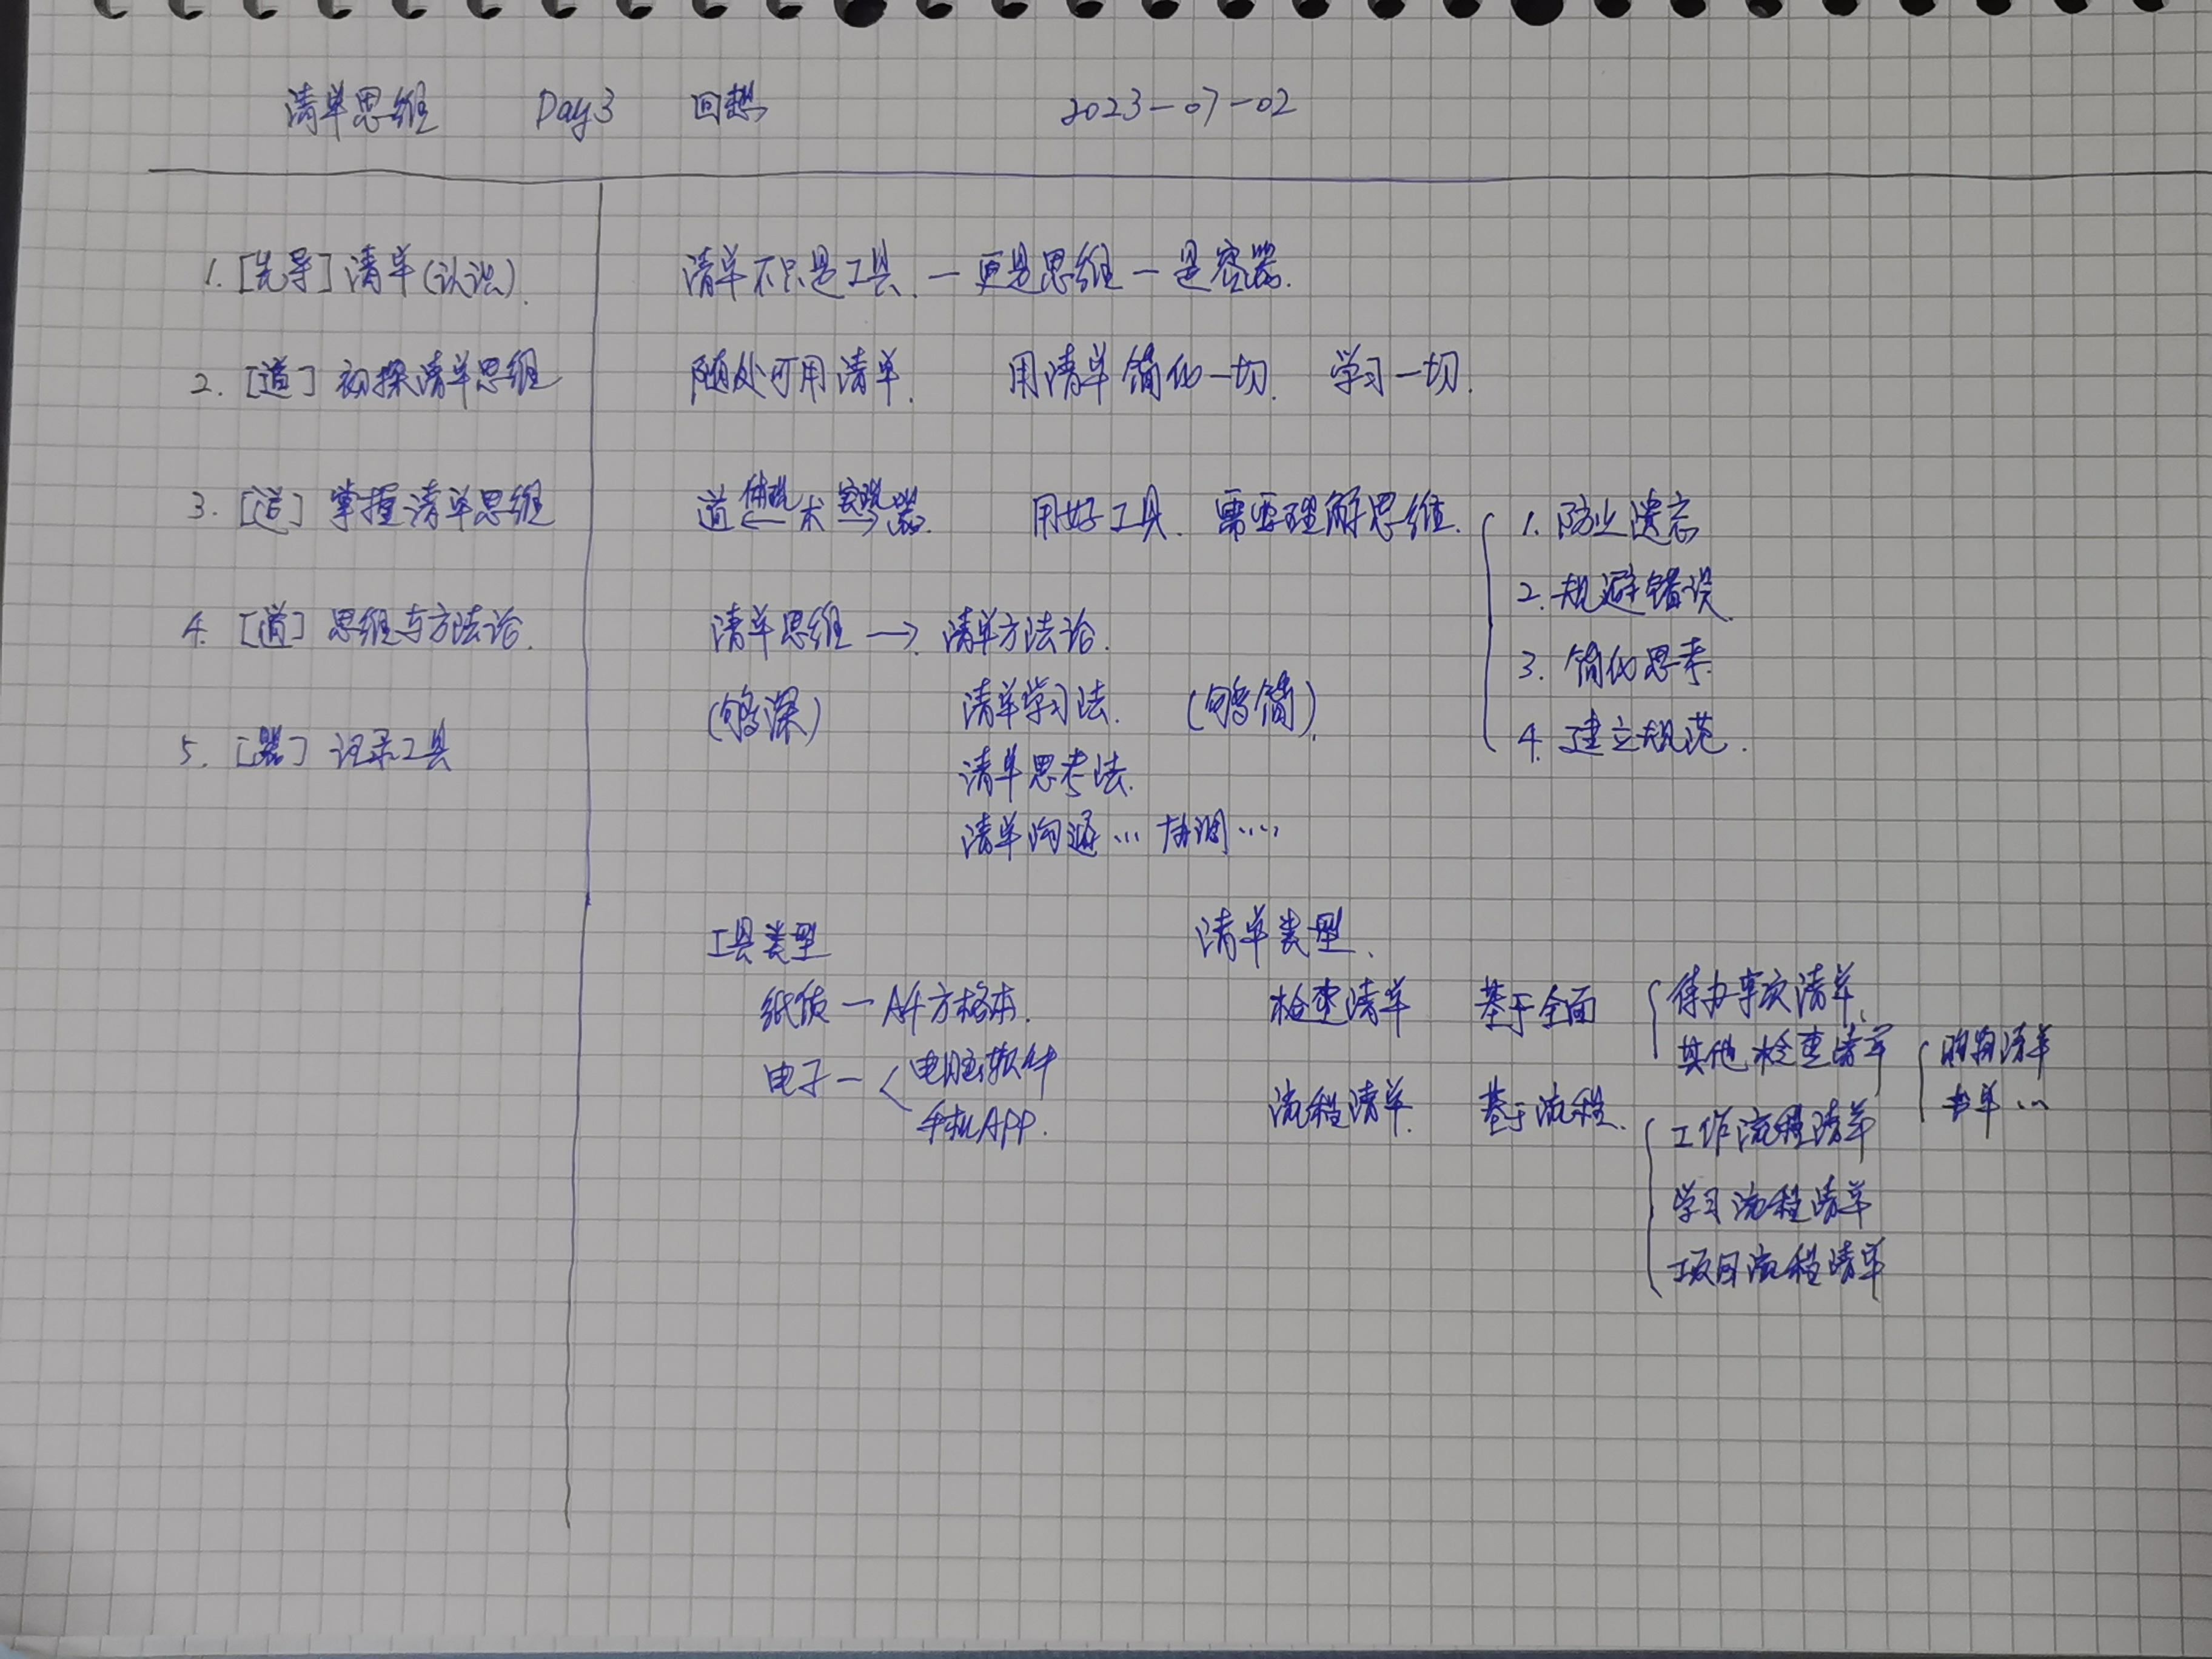 清单思维 Day3 回想 2023-07-02
1. [先导] 清单(认识).
2. [道] 初探清单思维
3. [道] 掌握清单思维
4. [道] 思维与方法论.
5. [器] 记录工具
清单不只是工具. — 更是思维 — 是容器.
随处可用清单. 用清单简化一切. 学习一切.
道 ← 体现 术 实现 → 器. 用好工具. 需要理解思维.
1. 防止遗忘
2. 规避错误.
3. 简化思考.
4. 建立规范.
清单思维 → 清单方法论.
(够深) 清单学习法. (够简).
清单思考法.
清单沟通… 协调……
工具类型
纸质 — A4方格本.
电子 — < 电脑软件
手机APP.
清单类型.
检查清单 基于全面 { 待办事项清单.
其他检查清单 { 购物清单
书单…
流程清单. 基于流程. { 工作流程清单
学习流程清单
项目流程清单